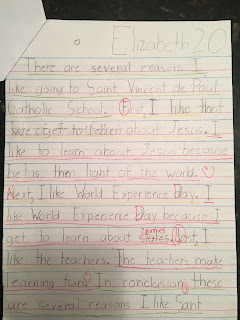 Elizabeth 20
There are several reasons I
like going to Saint Vincent de Paul
Catholic School. First, I like that
we get to learn about Jesus. I
like to learn about Jesus because
he is then light of the world.
Next, I like World Experience Day. I
like World Experience Day because I
get to learn about countries states. Last, I
like the teachers. The teachers make
learning fun. In conclusion, these
are several reasons I like Sant